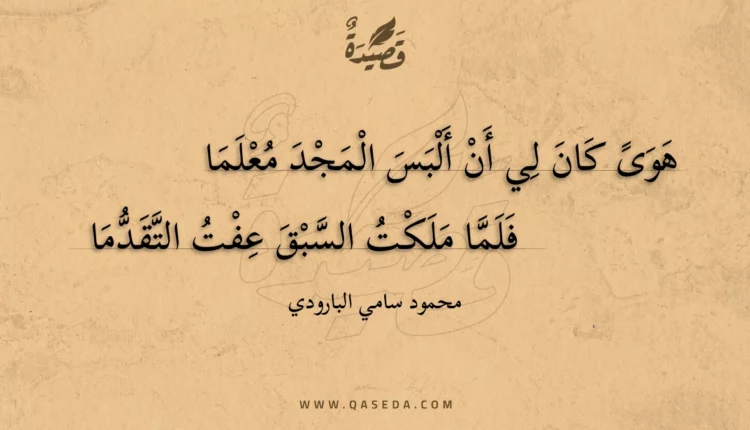 قَصِيْدَةٌ
هَوَىً كَانَ لِي أَنْ أَلْبَسَ الْمَجْدَ مُعْلَمَا
فَلَمَّا مَلَكْتُ السَّبْقَ عِفْتُ التَّقَدُّمَا
محمود سامي البارودي
WWW.QASEDA.COM